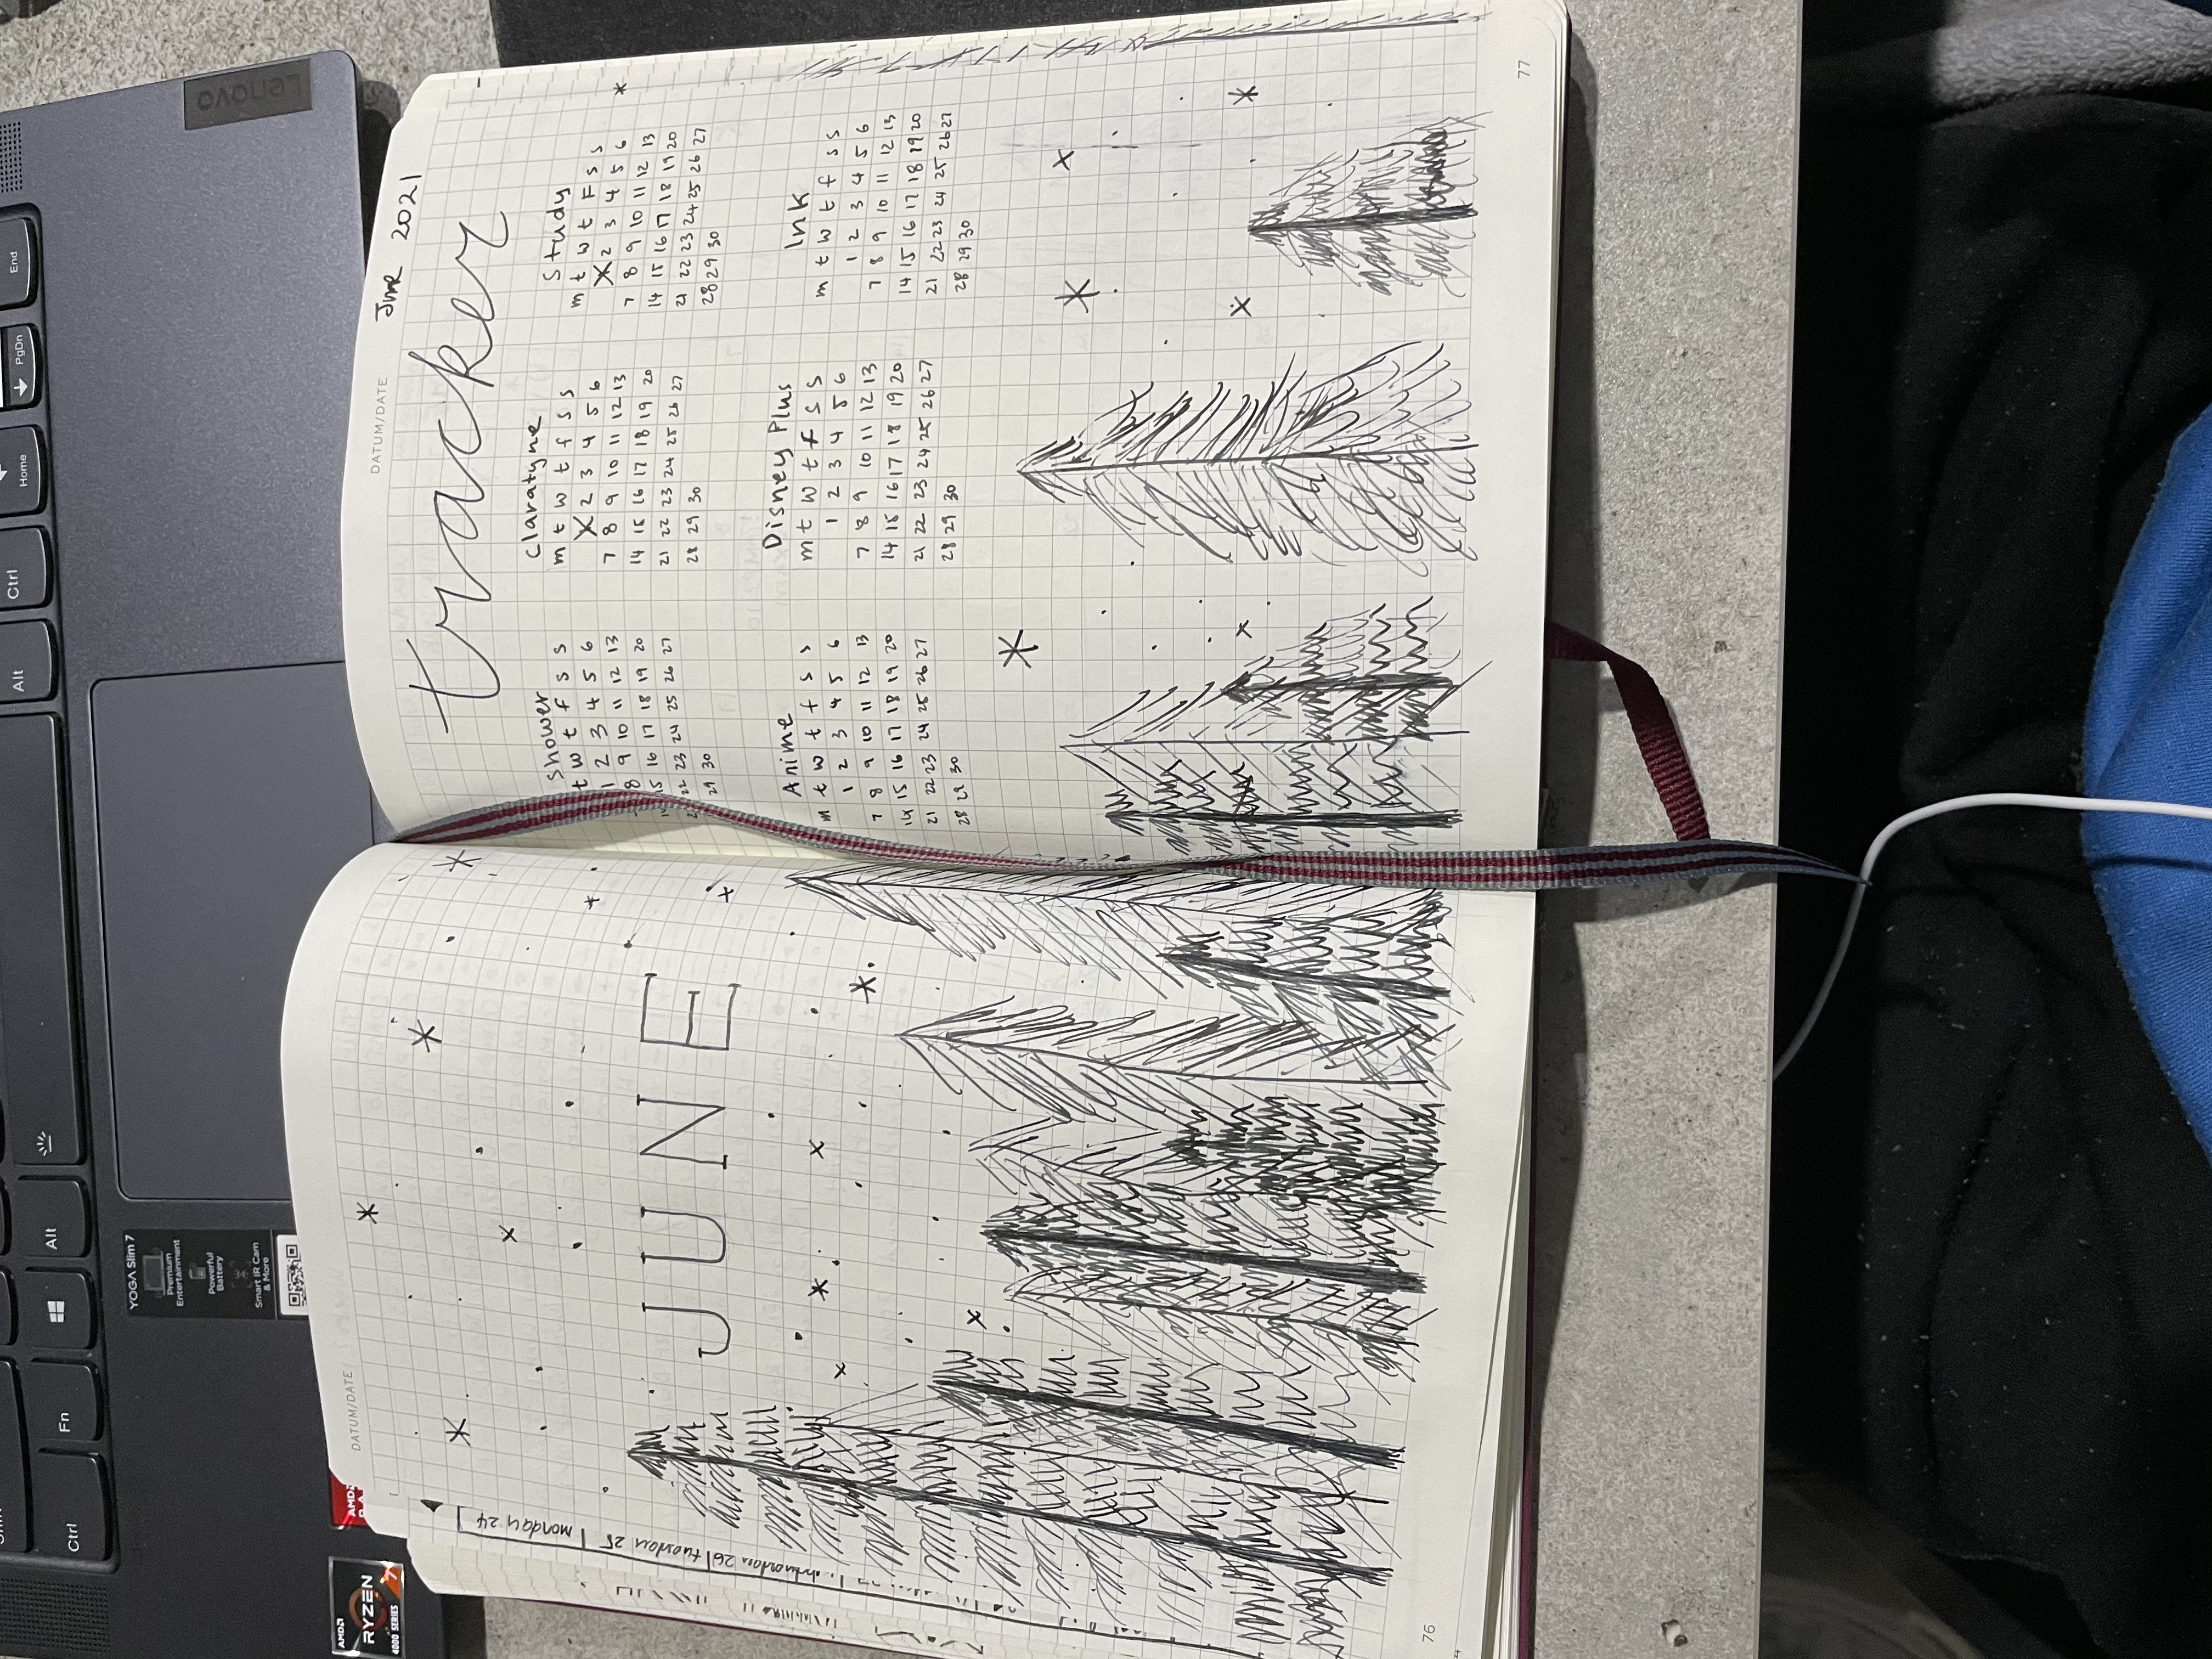 Alt
Ctrl
Home
PgDn
End
Ctrl
Fn
Alt
YOGA Slim 7
Premium
Entertainment
Powerful
Battery
Smart IR Cam
& More
Lenovo
AMD
RYZEN
4000 SERIES
7
AMD
DATUM/DATE
monday 24
tuesday 25
JUNE
76
DATUM/DATE
June 2021
tracker
Shower
t w t f s s
1 2 3 4 5 6
8 9 10 11 12 13
15 16 17 18 19 20
22 23 24 25 26 27
29 30
Claratyne
m t w t f s s
X 2 3 4 5 6
7 8 9 10 11 12 13
14 15 16 17 18 19 20
21 22 23 24 25 26 27
28 29 30
Study
m t w t F s s
X 2 3 4 5 6
7 8 9 10 11 12 13
14 15 16 17 18 19 20
21 22 23 24 25 26 27
28 29 30
Anime
m t w t f s s
1 2 3 4 5 6
7 8 9 10 11 12 13
14 15 16 17 18 19 20
21 22 23 24 25 26 27
28 29 30
Disney Plus
m t w t f s s
1 2 3 4 5 6
7 8 9 10 11 12 13
14 15 16 17 18 19 20
21 22 23 24 25 26 27
28 29 30
Ink
m t w t f s s
1 2 3 4 5 6
7 8 9 10 11 12 13
14 15 16 17 18 19 20
21 22 23 24 25 26 27
28 29 30
77